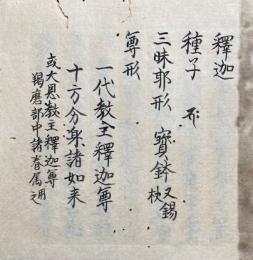 釋迦
種子
三昧耶形 寶鉢 又錫杖
尊形
一代教主釋迦尊
十方分 諸如来
或大恩教主釋迦尊
羯磨部中諸眷属用之